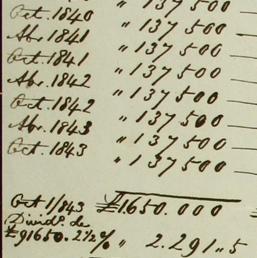 Oct. 1840 " 137500
Abr. 1841 " 137500
Oct. 1841 " 137500
Abr. 1842 " 137500
Oct. 1842 " 137500
Abr. 1843 " 137500
Oct. 1843 " 137500
" 137500
Oct 1/843 £1650.000
Divid.º de
£91650. 2½% " 2.291"5